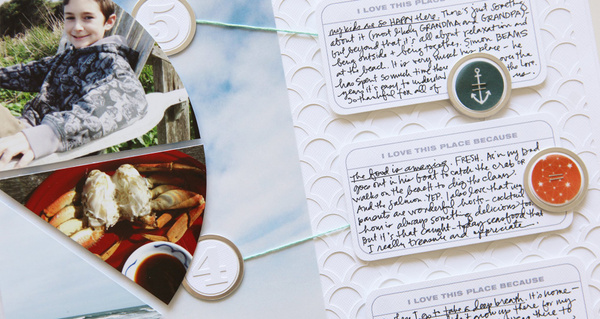 5
I LOVE THIS PLACE BECAUSE
my kids are SO HAPPY there. There's just something
about it (most likely GRANDMA and GRANDPA)
but beyond that it's all about relaxation and
being outside + being together. Simon BEAMS
at the beach. It is very much his place - he
has spent so much time there over the
years it's easy to understand
So thankful for all of us.
I LOVE THIS PLACE BECAUSE
The food is amazing. FRESH. As in my Dad
goes out in his boat to catch the crab or
walks on the beach to dig the clams.
And the salmon YEP. I also love that my
parents are wonderful hosts - cocktail
hour is always something delicious too.
But it's that caught-today seafood that
I really treasure and appreciate.
4
I LOVE THIS PLACE BECAUSE
I get to take a deep breath. It's home -
grow up there for my
were there to